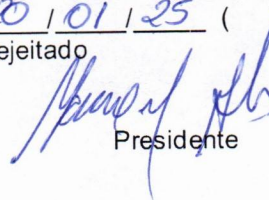 0 / 01 / 25 (
ejeitado
Presidente